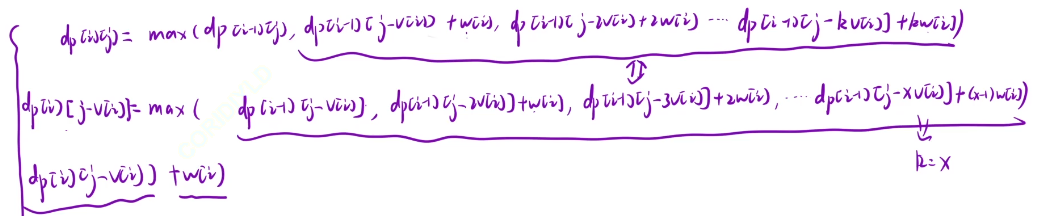 dp[i][j] = max(dp[i-1][j], dp[i-1][j-v[i]] + w[i], dp[i-1][j-2v[i]] + 2w[i] ... dp[i-1][j-kv[i]] + kw[i])
dp[i][j-v[i]] = max( dp[i-1][j-v[i]], dp[i-1][j-2v[i]] + w[i], dp[i-1][j-3v[i]] + 2w[i], ... dp[i-1][j-xv[i]] + (x-1)w[i])
k=x
dp[i][j-v[i]] + w[i]